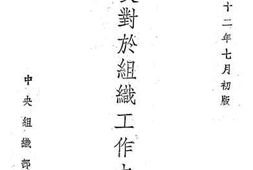 十二年七月初版
對於組織工作
中央組織部